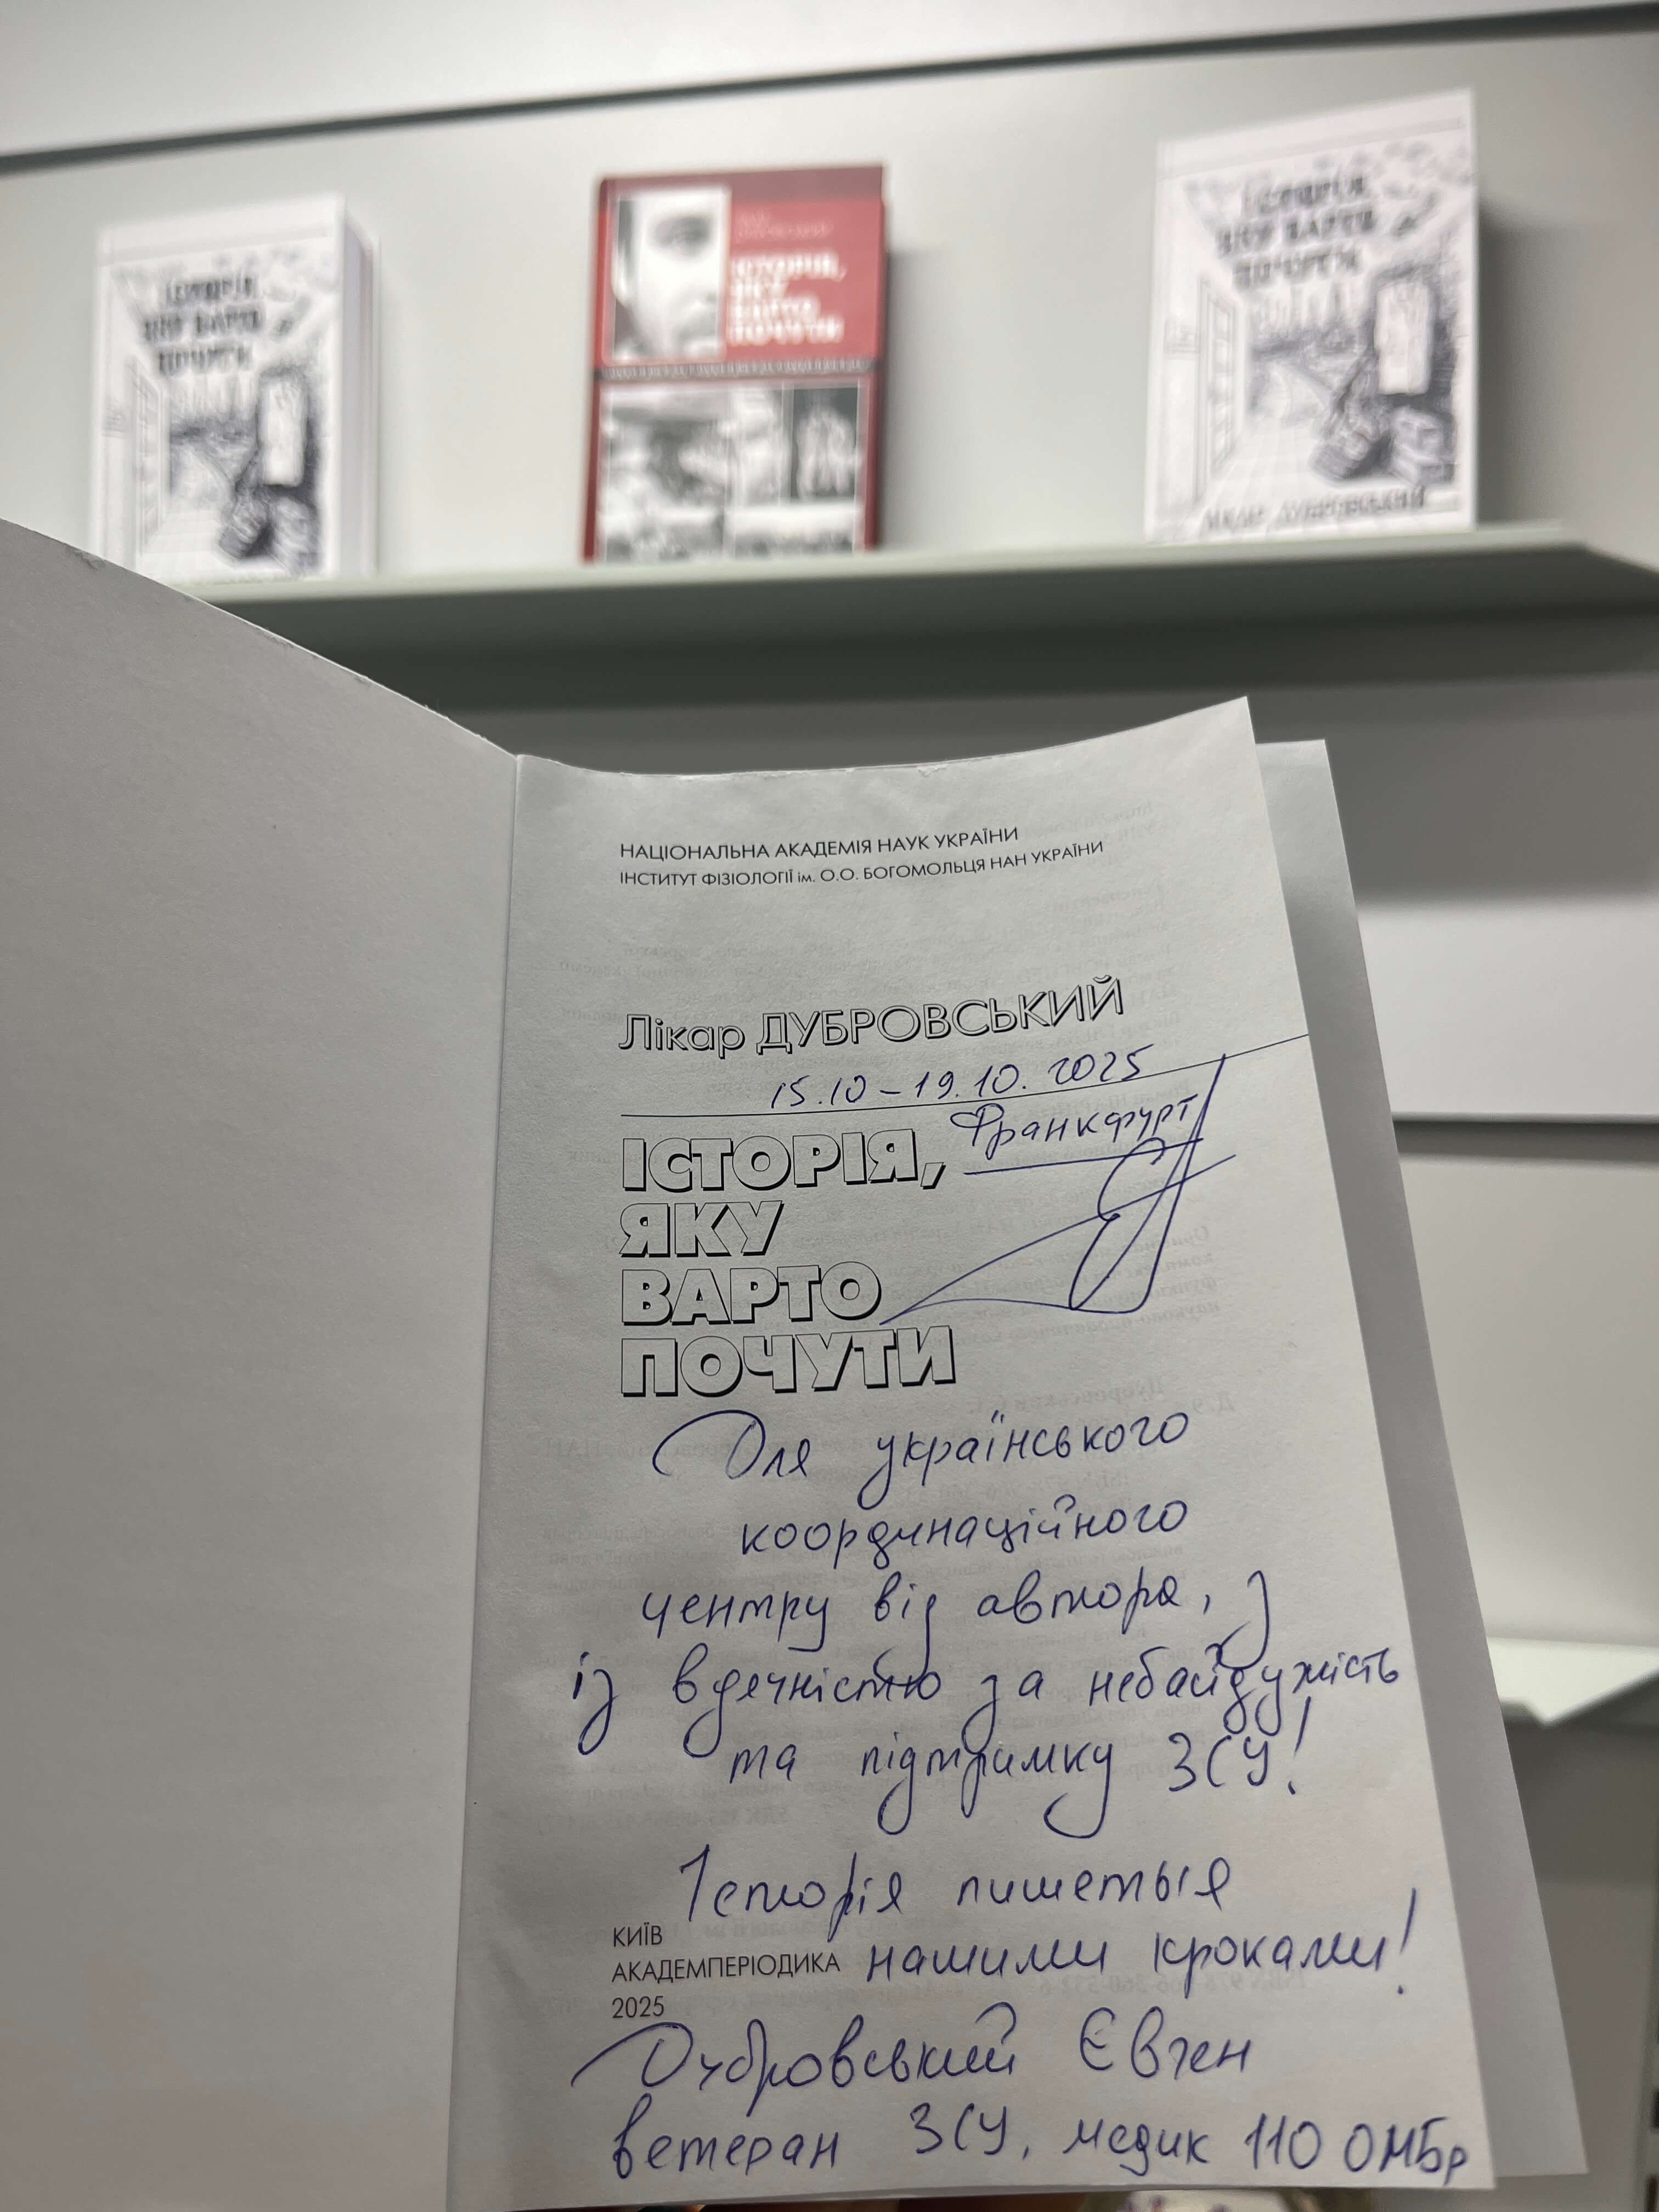 ІСТОРІЯ,
ЯКУ ВАРТО
ПОЧУТИ
ІСТОРІЯ,
ЯКУ
ВАРТО
ПОЧУТИ
ІСТОРІЯ,
ЯКУ ВАРТО
ПОЧУТИ
ЛІКАР ДУБРОВСЬКИЙ
НАЦІОНАЛЬНА АКАДЕМІЯ НАУК УКРАЇНИ
ІНСТИТУТ ФІЗІОЛОГІЇ ім. О.О. БОГОМОЛЬЦЯ НАН УКРАЇНИ
Лікар ДУБРОВСЬКИЙ
15.10 – 19.10. 2025
Франкфурт
ІСТОРІЯ,
ЯКУ
ВАРТО
ПОЧУТИ
Для українського
координаційного
центру від автора,
із вдячністю за небайдужість
та підтримку ЗСУ!
Історія пишеться
нашими кроками!
КИЇВ
АКАДЕМПЕРІОДИКА
2025
Дубровський Євген
ветеран ЗСУ, медик 110 ОМБр